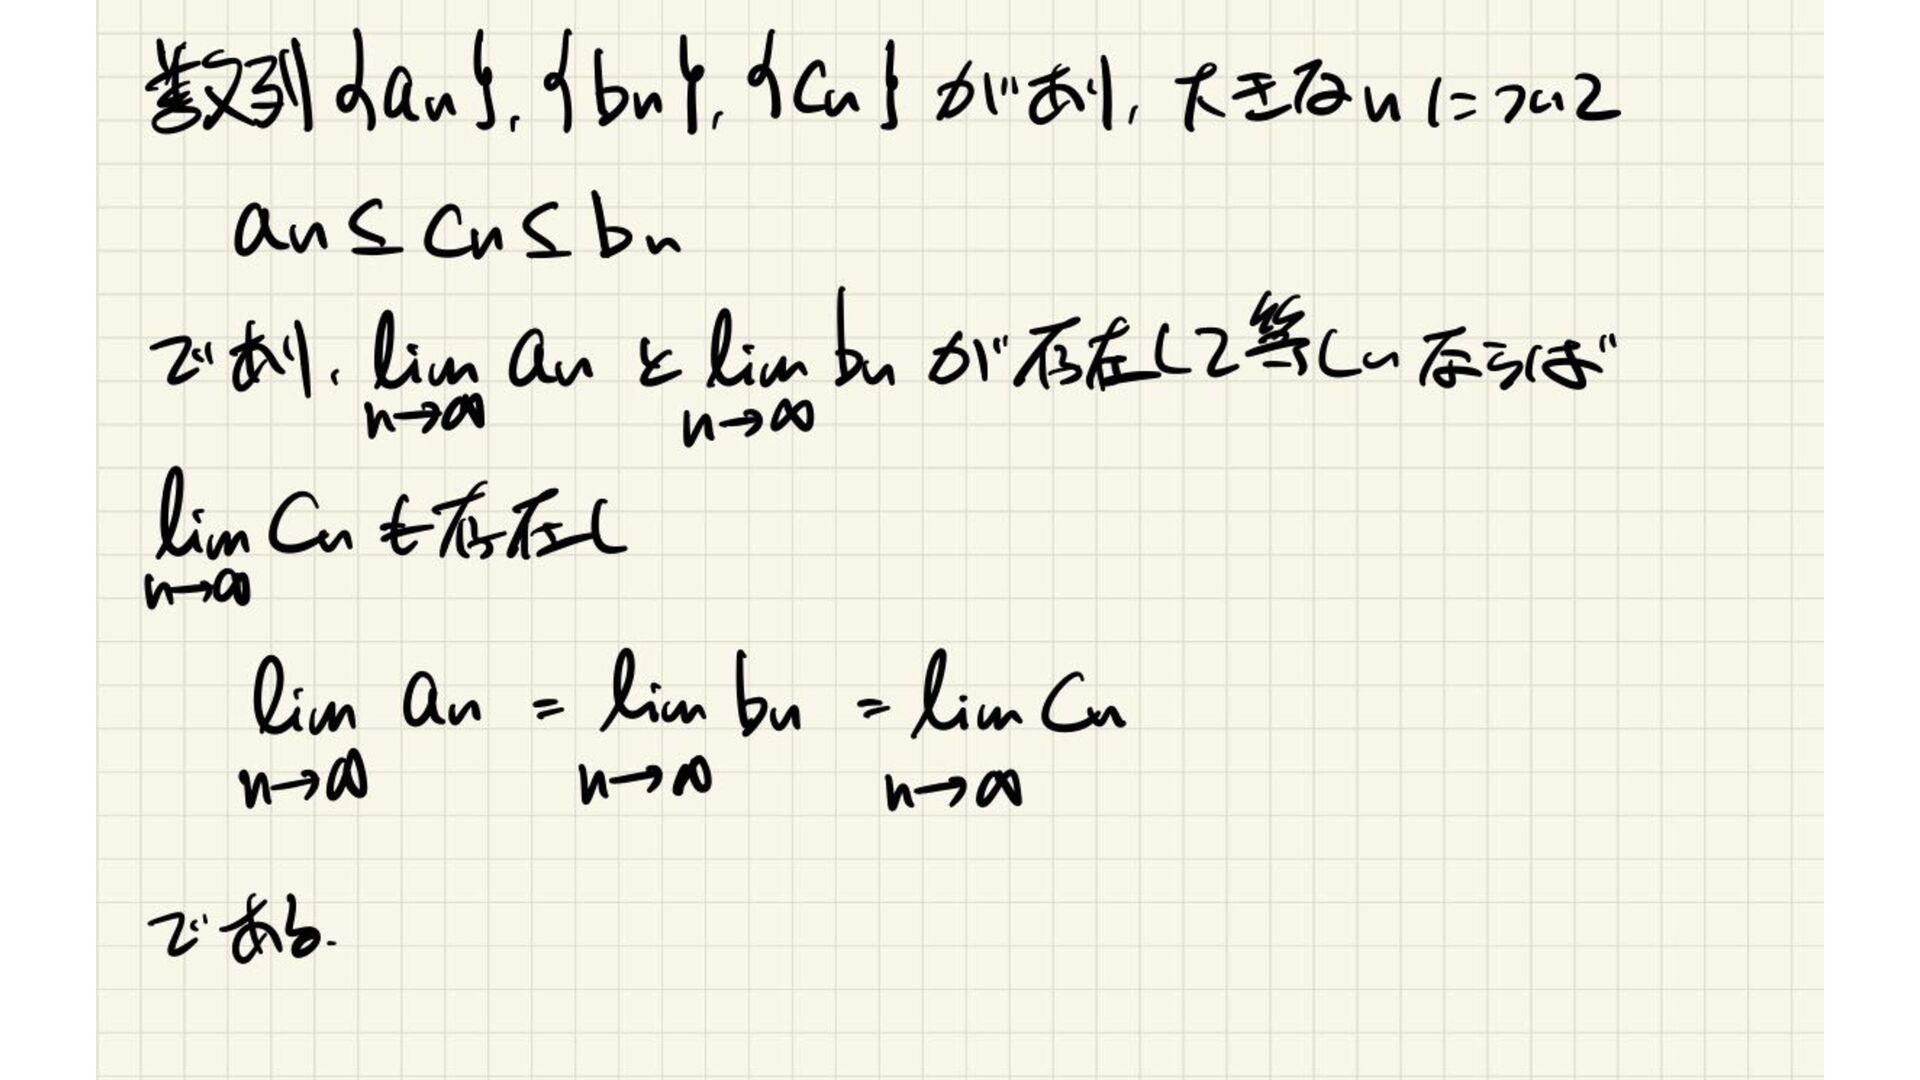 数列{an},{bn},{Cn}があり,大きなnについて
an≦Cn≦bn
であり,lim an と lim bn が存在して等しいならば
n→∞ n→∞
lim Cn も存在し
n→∞
lim an = lim bn = lim Cn
n→∞ n→∞ n→∞
である.